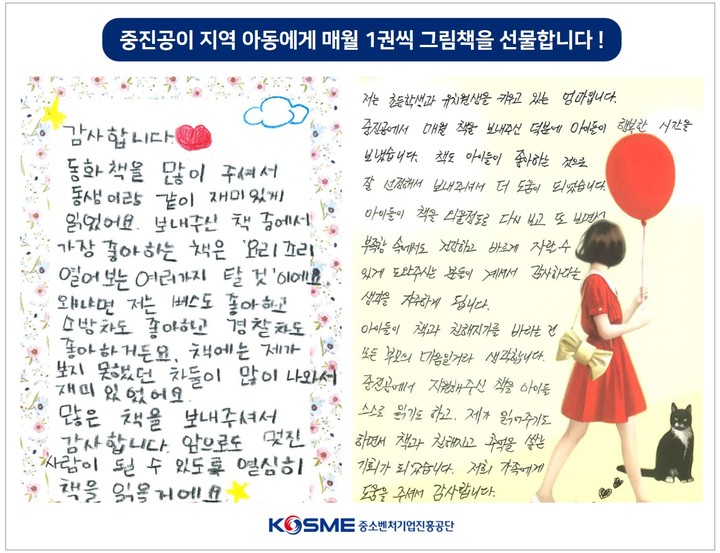 중진공이 지역 아동에게 매월 1권씩 그림책을 선물합니다 !
감사합니다
동화책을 많이 주셔서
동생이랑 같이 재미있게
읽었어요. 보내주신 책 중에서
가장 좋아하는 책은 '요리조리
열어보는 여러가지 탈 것'이에요.
왜냐면 저는 버스도 좋아하고
소방차도 좋아하고 경찰차도
좋아하거든요. 책에는 제가
보지 못했던 차들이 많이 나와서
재미있었어요.
많은 책을 보내주셔서
감사합니다. 앞으로도 멋진
사람이 될 수 있도록 열심히
책을 읽을거에요.
저는 초등학생과 유치원생을 키우고 있는 엄마입니다.
중진공에서 매월 책을 보내주신 덕분에 아이들이 행복한 시간을
보냈습니다. 책도 아이들이 좋아하는 것으로
잘 선정해서 보내주셔서 더 도움이 되었습니다.
아이들이 책을 다시 보고 또 보면서
부족함 속에서도 건강하고 바르게 자랄 수
있게 도와주시는 분들이 계셔서 감사하다는
생각을 자주하게 됩니다.
아이들이 책과 친해지기를 바라는 건
모든 부모의 마음일거라 생각합니다.
중진공에서 지원해주신 책을 아이들
스스로 읽기도 하고, 제가 읽어주기도
하면서 책과 친해지고 추억을 쌓는
기회가 되었습니다. 저희 가족에게
도움을 주셔서 감사합니다.
KOSME 중소벤처기업진흥공단